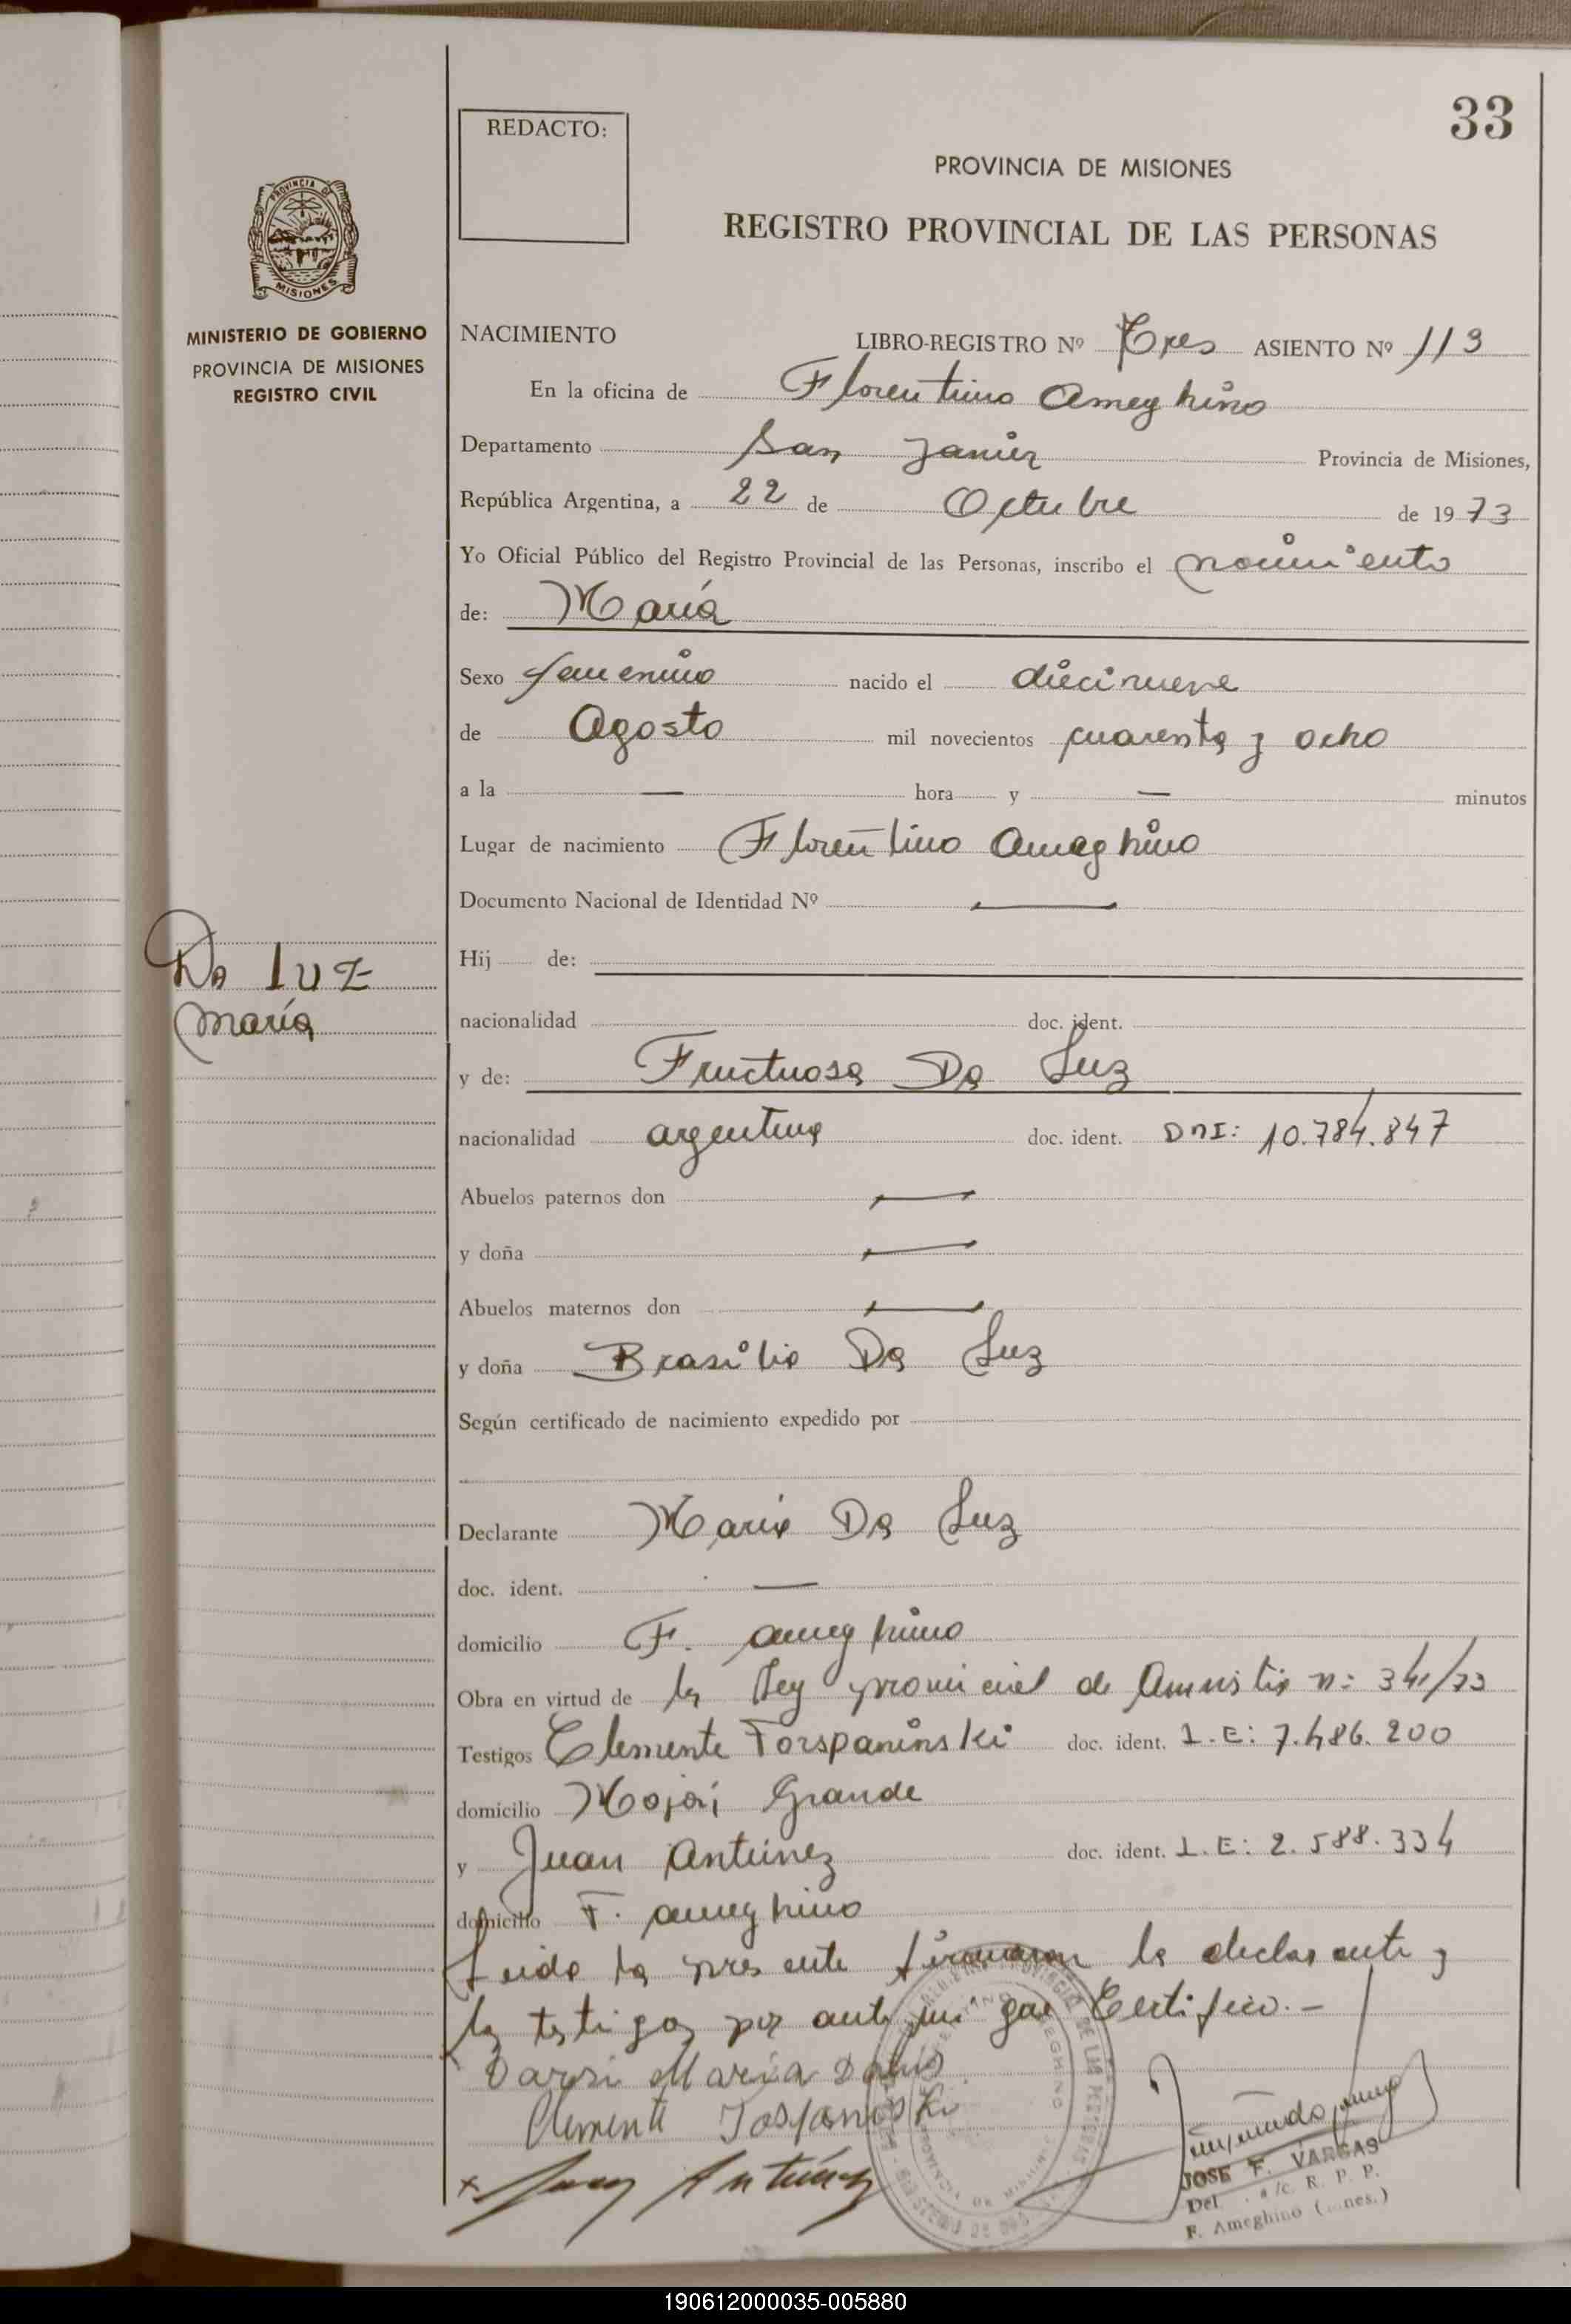 33
REDACTO:
PROVINCIA DE MISIONES
REGISTRO PROVINCIAL DE LAS PERSONAS
PROVINCIA DE
MISIONES
MINISTERIO DE GOBIERNO
PROVINCIA DE MISIONES
REGISTRO CIVIL
NACIMIENTO LIBRO-REGISTRO Nº Tres ASIENTO Nº 113
En la oficina de Florentino Ameghino
Departamento San Javier Provincia de Misiones,
República Argentina, a 22 de Octubre de 1973
Yo Oficial Público del Registro Provincial de las Personas, inscribo el nacimiento
de: María
Sexo femenino nacido el diecinueve
de Agosto mil novecientos cuarenta y ocho
a la — hora y — minutos
Lugar de nacimiento Florentino Ameghino
Documento Nacional de Identidad Nº —
Da Luz
María
Hij de:
nacionalidad doc. ident.
y de: Fructuosa Da Luz
nacionalidad argentina doc. ident. DNI: 10.784.847
Abuelos paternos don —
y doña —
Abuelos maternos don —
y doña Brasilia Da Luz
Según certificado de nacimiento expedido por
Declarante María Da Luz
doc. ident. —
domicilio F. Ameghino
Obra en virtud de la Ley provincial de Amnistia n: 341/73
Testigos Clemente Torspaninski doc. ident. L.E: 7.486.200
domicilio Mojón Grande
y Juan Antunez doc. ident. L.E: 2.588.334
domicilio F. Ameghino
Leida la presente firmaron la declarante y
los testigos por ante mi que Certifico.-
María
Clemente
x Juan Antúnez
JOSE F. VARGAS
Del. a/c. R. P. P.
F. Ameghino ( nes.)
190612000035-005880